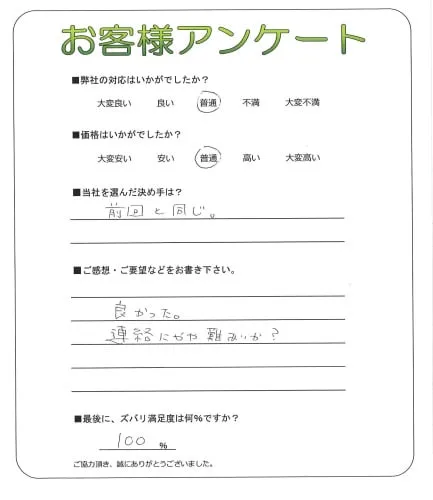 お客様アンケート
■弊社の対応はいかがでしたか？
大変良い 良い 普通 不満 大変不満
■価格はいかがでしたか？
大変安い 安い 普通 高い 大変高い
■当社を選んだ決め手は？
前回と同じ。
■ご感想・ご要望などをお書き下さい。
良かった。
連絡にやや難ありか？
■最後に、ズバリ満足度は何%ですか？
100 %
ご協力頂き、誠にありがとうございました。